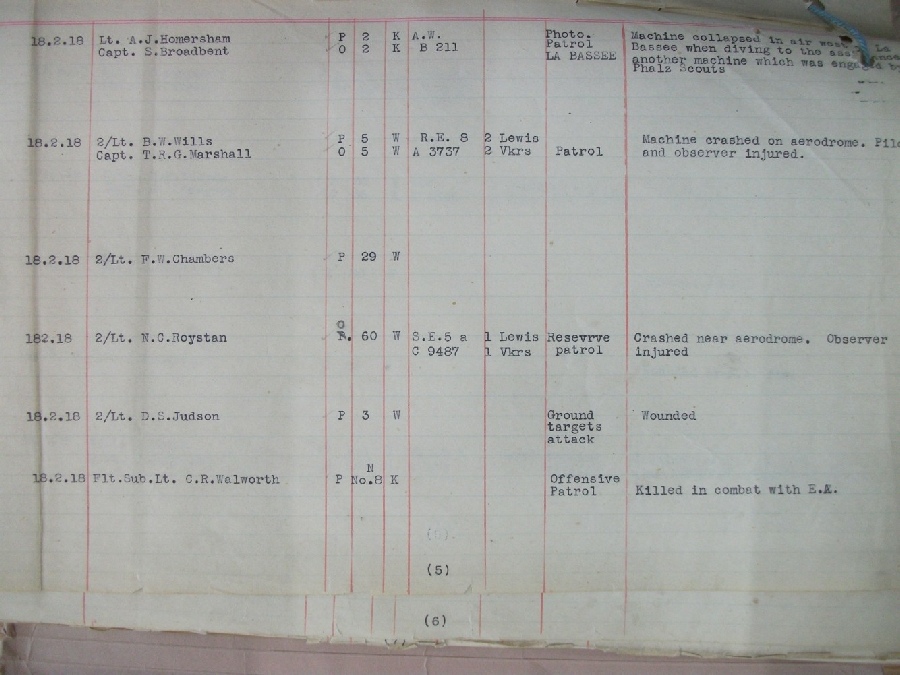 18.2.18 Lt. A.J.Homersham P 2 K A.W. Photo. Machine collapsed in air west La
Capt. S.Broadbent O 2 K B 211 Patrol Bassee when diving to the
LA BASSEE another machine which was engaged by
Phalz Scouts
18.2.18 2/Lt. B.W.Wills P 5 W R.E. 8 2 Lewis Machine crashed on aerodrome.
Capt. T.R.G.Marshall O 5 W A 3737 2 Vkrs Patrol and observer injured.
18.2.18 2/Lt. F.W.Chambers P 29 W
O
182.18 2/Lt. N.C.Roystan 60 W S.E.5 a 1 Lewis Resevrve Crashed near aerodrome. Observer
C 9487 1 Vkrs patrol injured
18.2.18 2/Lt. D.S.Judson P 3 W Ground Wounded
targets
attack
N
18.2.18 Flt.Sub.Lt. C.R.Walworth P No.8 K Offensive
Patrol Killed in combat with E.A.
(5)
(6)